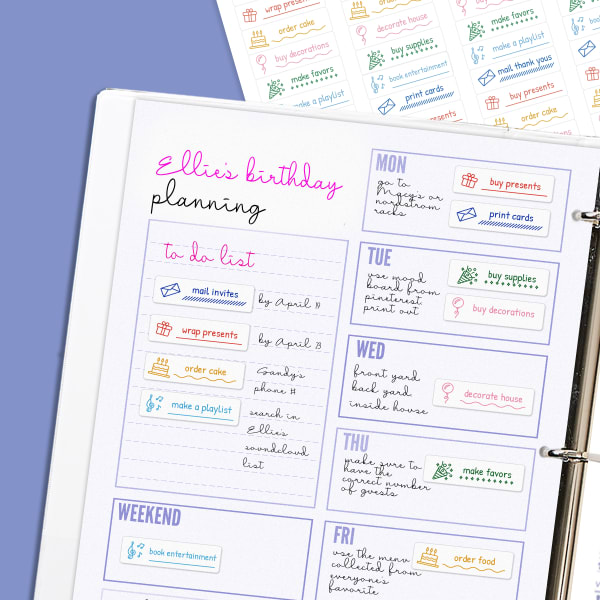 wrap presents
order cake
buy decorations
make favors
make a playlist
order cake
decorate house
buy supplies
book entertainment
print cards
make favors
make a playlist
mail thank yous
buy presents
order cake
Ellie's birthday
planning
to do list
mail invites
by April 19
wrap presents
by April 23
order cake
Gandy's
phone #
make a playlist
search in
Ellie's
soundcloud
list
WEEKEND
book entertainment
MON
go to
Macy's or
nordstrom
racks
buy presents
print cards
TUE
use mood
board from
pineterest
print out
buy supplies
buy decorations
WED
front yard
back yard
inside house
decorate house
THU
make sure to
have the
correct number
of guests
make favors
FRI
use the menu
collected from
everyone's
favorite
order food